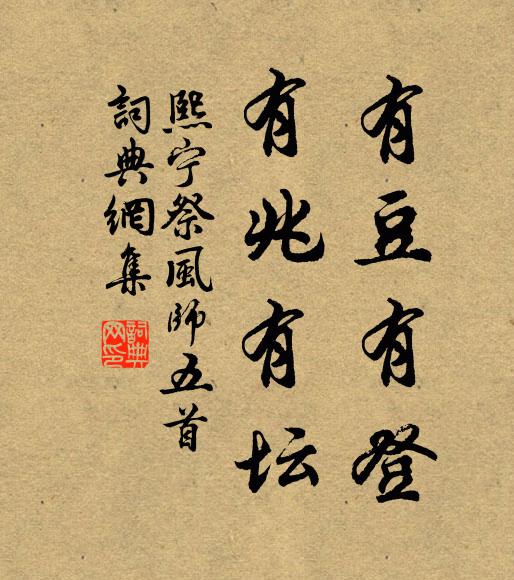 有豆有登
有兆有坛
熙宁祭風師五首
詞典網集
詞典网印